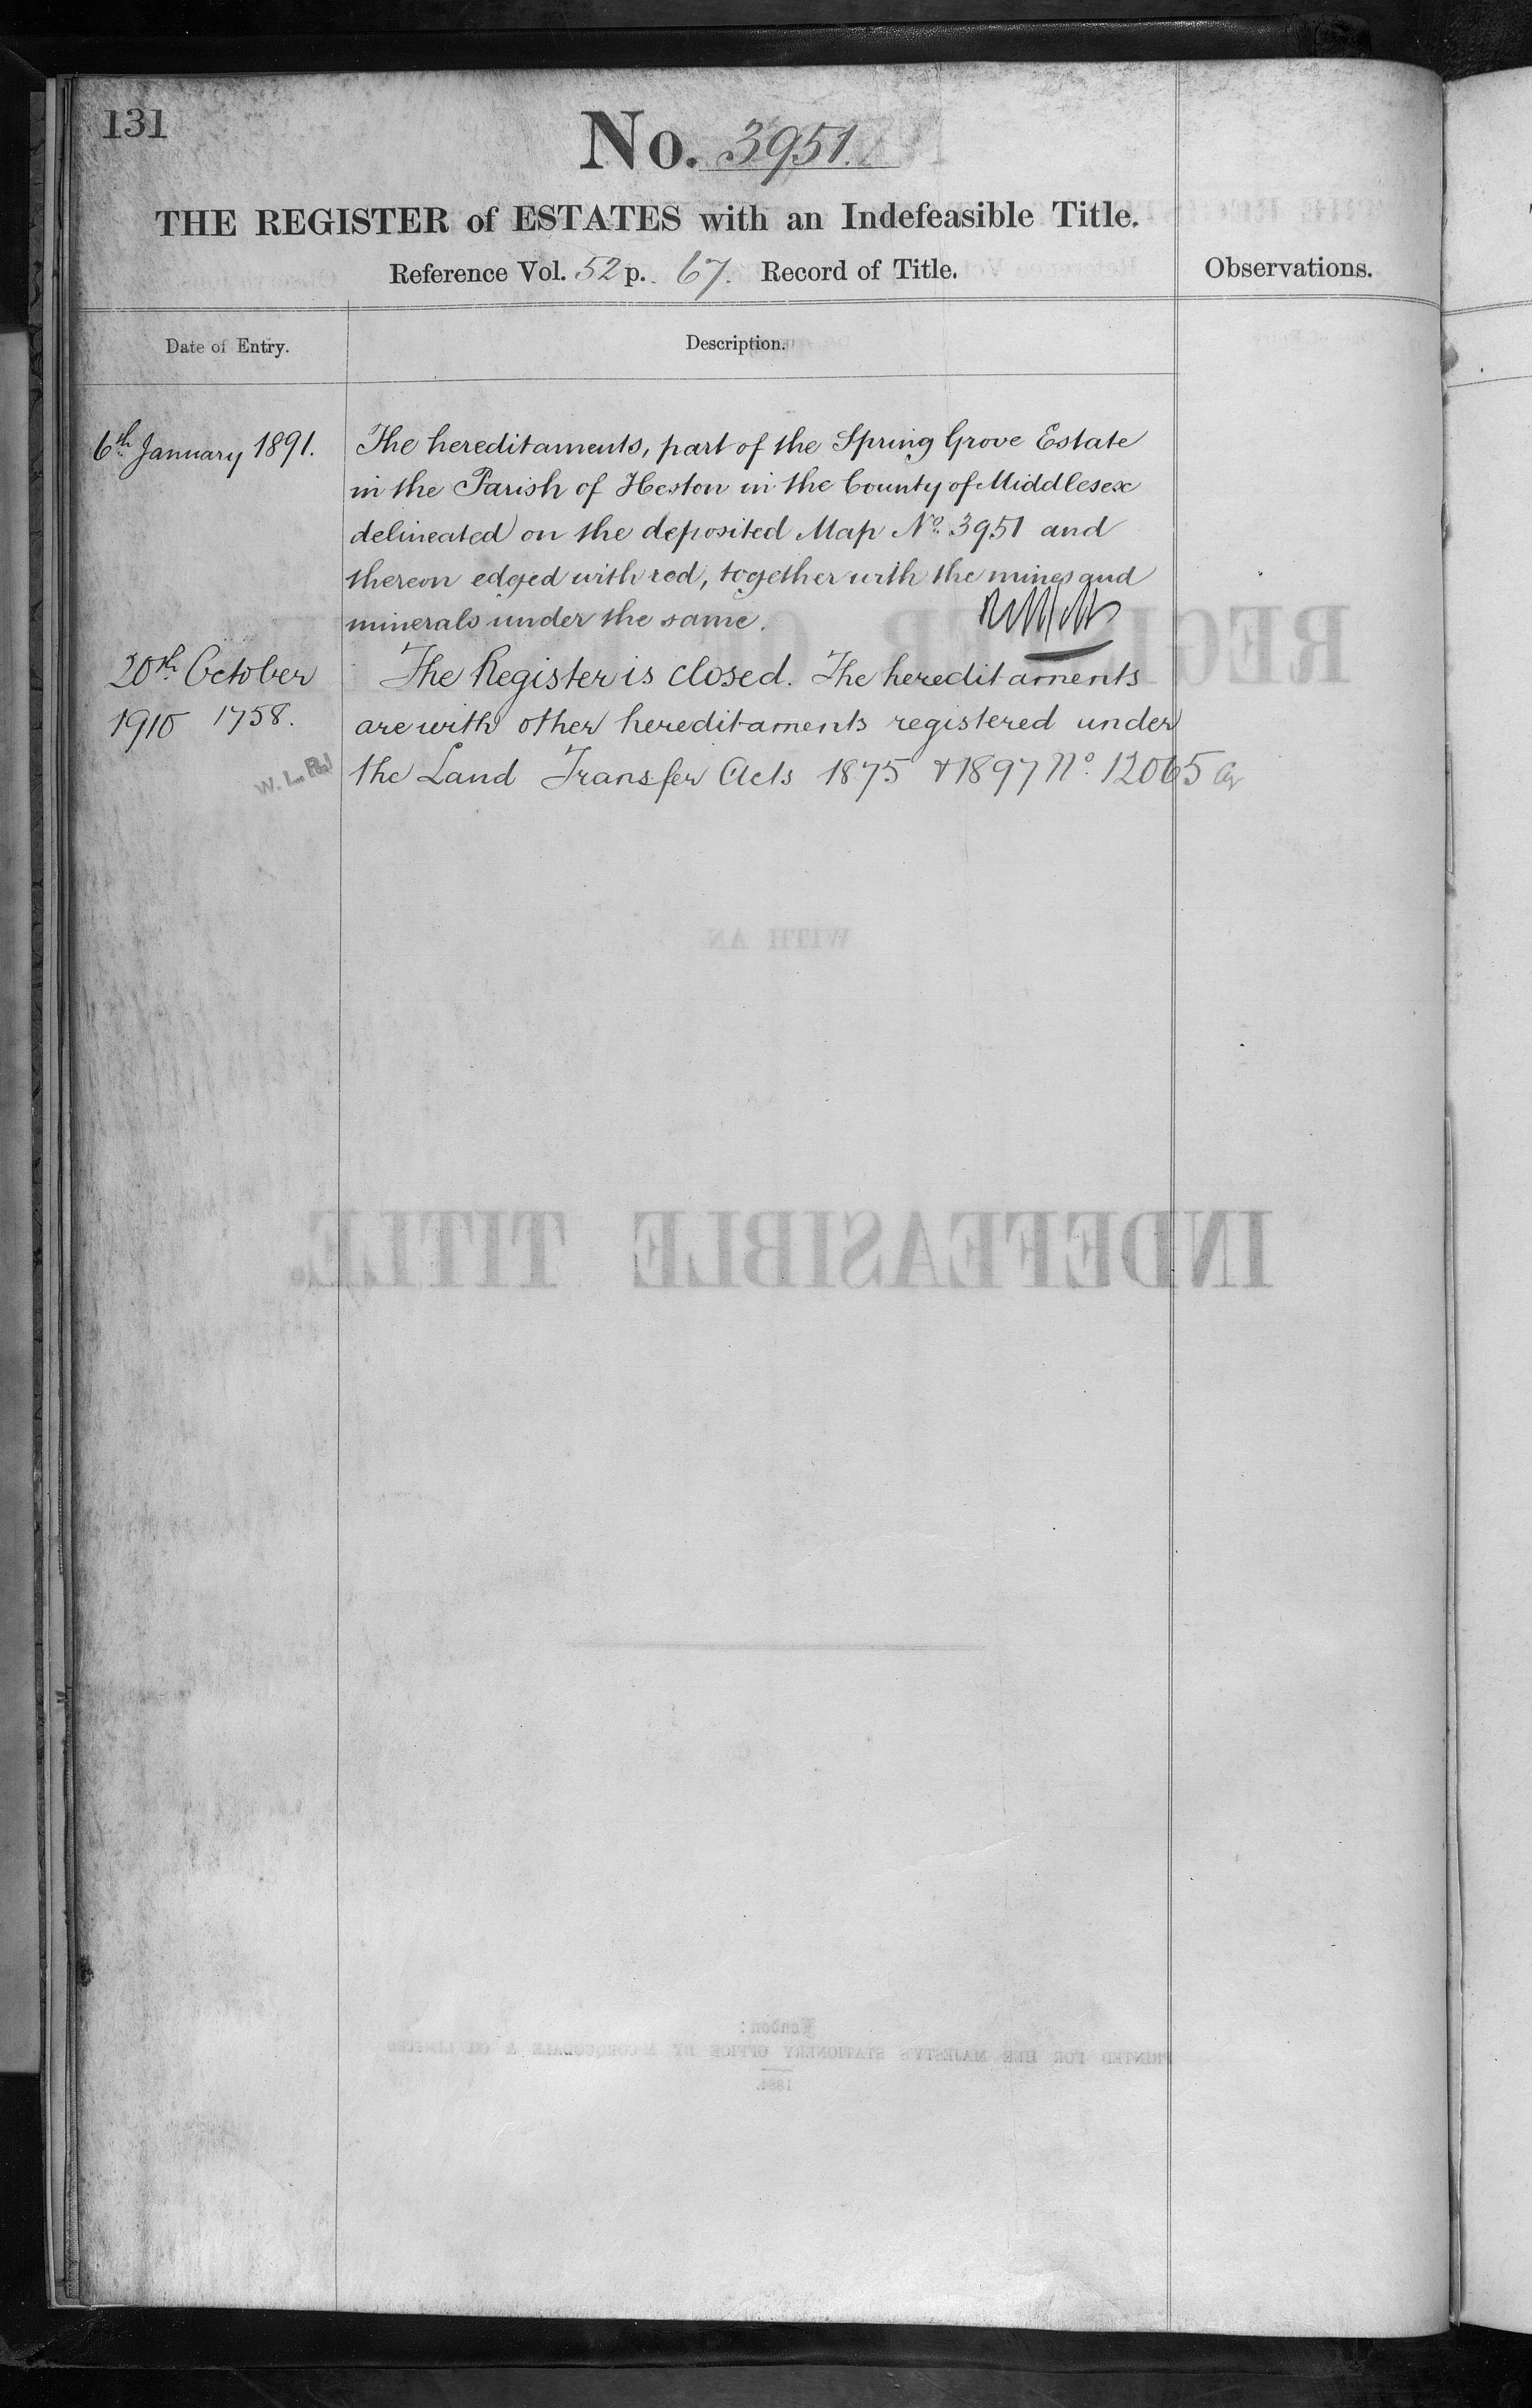 131
No. 3951.
THE REGISTER of ESTATES with an Indefeasible Title.
Reference Vol. 52 p. 67. Record of Title.
Observations.
Date of Entry.
Description.
6th January 1891.
The hereditaments, part of the Spring Grove Estate
in the Parish of Heston in the County of Middlesex
delineated on the deposited Map No. 3951 and
thereon edged with red, together with the mines and
minerals under the same.
20th October
1910 1758.
W. L. R.
The Register is closed. The hereditaments
are with other hereditaments registered under
the Land Transfer Acts 1875 & 1897 No. 12065